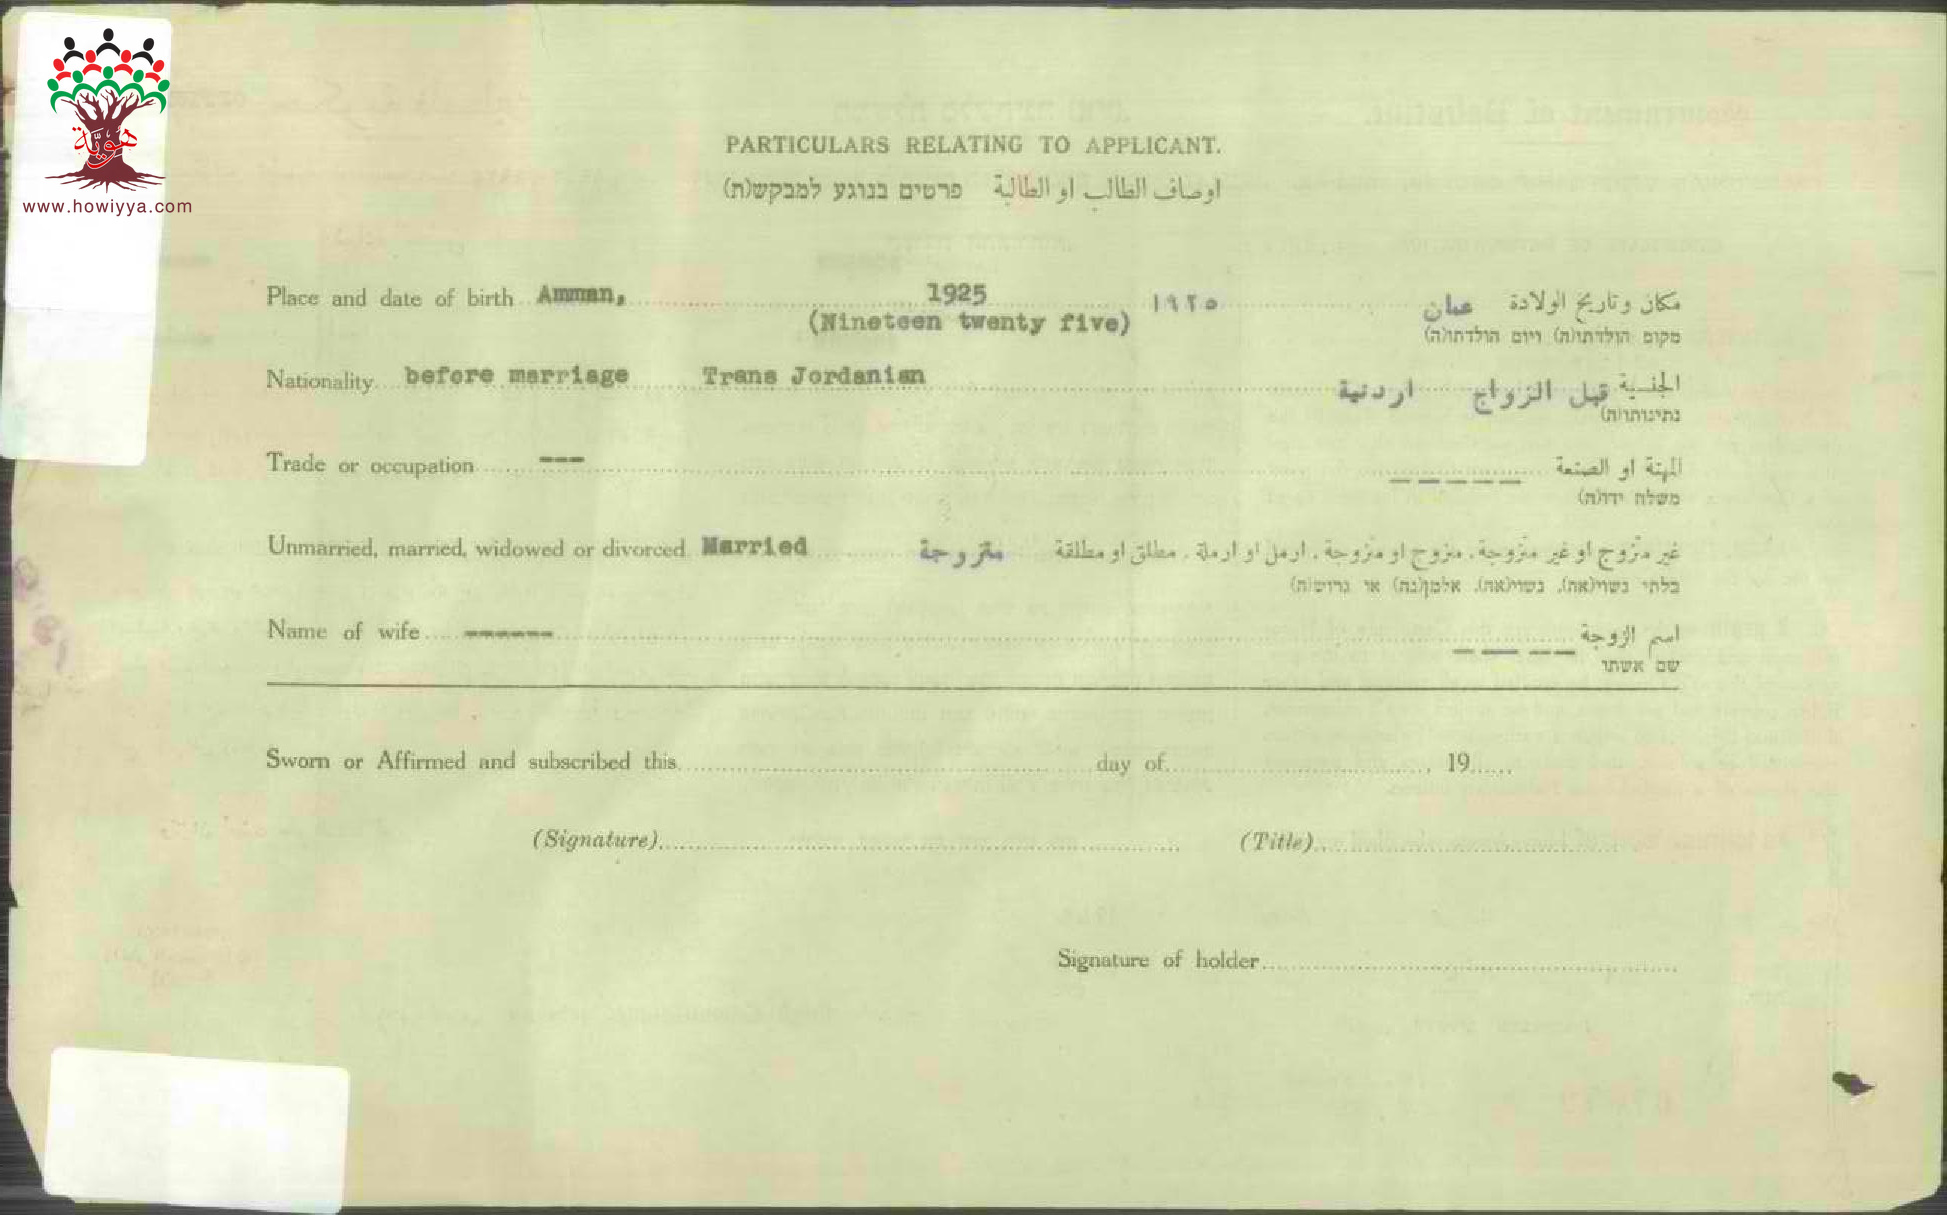 هويّة
www.howiyya.com
PARTICULARS RELATING TO APPLICANT.
اوصاف الطالب او الطالبة פרטים בנוגע למבקש(ת)
Place and date of birth Amman, 1925 ١٩٢٥ عمان مكان وتاريخ الولادة
(Nineteen twenty five) מקום הולדתו(ה) ויום הולדתו(ה)
Nationality before marriage Trans Jordanian الجنسية قبل الزواج اردنية
נתינותו(ה)
Trade or occupation --- المهنة او الصنعة -----
משלח ידו(ה)
Unmarried, married, widowed or divorced Married متزوجة غير متزوج او غير متزوجة، متزوج او متزوجة، ارمل او ارملة، مطلق او مطلقة
בלתי נשוי(אה), נשוי(אה), אלמן(נה) או גרוש(ה)
Name of wife ------- اسم الزوجة ----
שם אשתו
Sworn or Affirmed and subscribed this day of , 19
(Signature) (Title)
Signature of holder